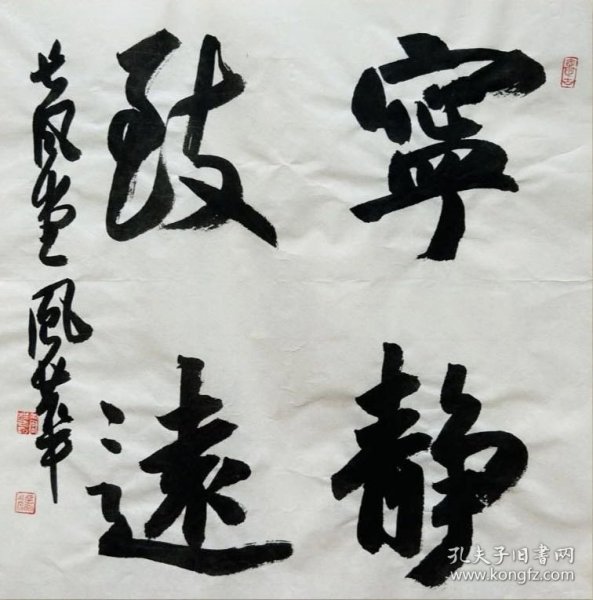 寧靜
致遠
大風堂 風華
孔夫子旧书网
www.kongfz.com